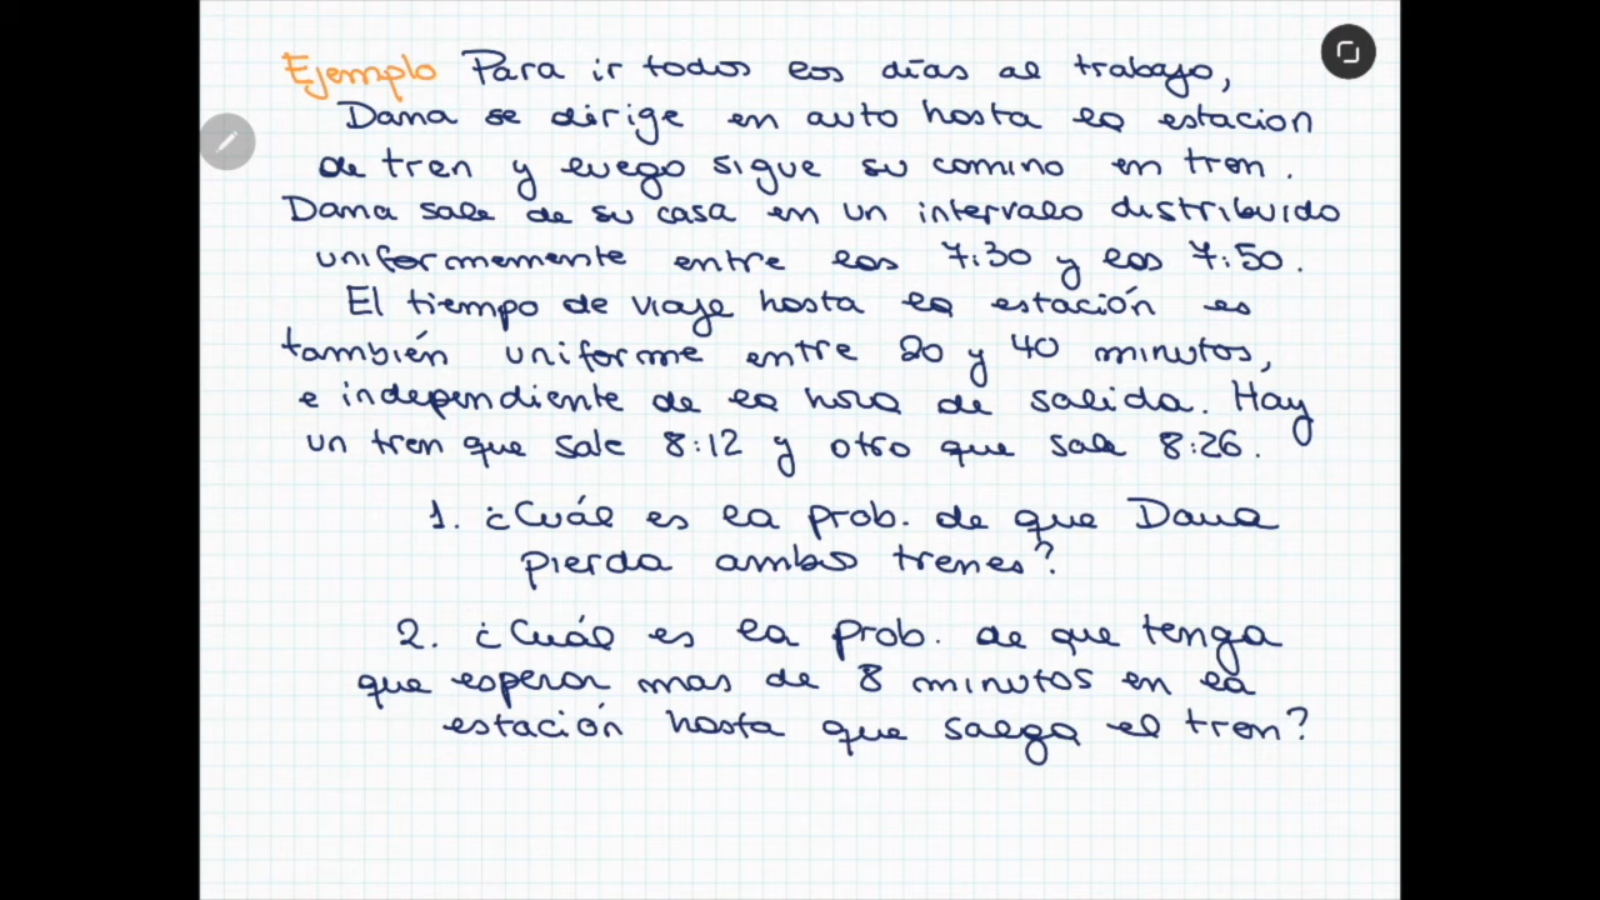 Ejemplo Para ir todos los días al trabajo,
Dana se dirige en auto hasta la estacion
de tren y luego sigue su camino en tren.
Dana sale de su casa en un intervalo distribuido
uniformemente entre las 7:30 y las 7:50.
El tiempo de viaje hasta la estación es
también uniforme entre 20 y 40 minutos,
e independiente de la hora de salida. Hay
un tren que sale 8:12 y otro que sale 8:26.
1. ¿Cuál es la prob. de que Dana
pierda ambos trenes?
2. ¿Cuál es la prob. de que tenga
que esperar mas de 8 minutos en la
estación hasta que salga el tren?